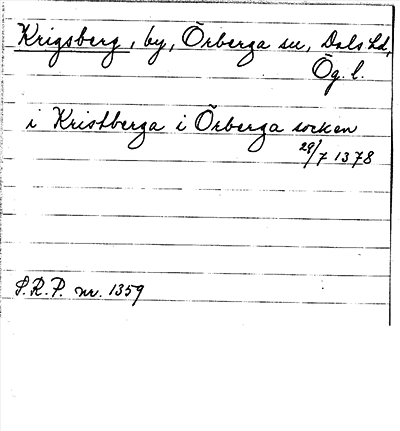 Krigsberg, by, Örberga sn, Dals hd,
Ög. l.
i Kristberga i Örberga socken
29/7 1378
S.R.P. nr. 1359